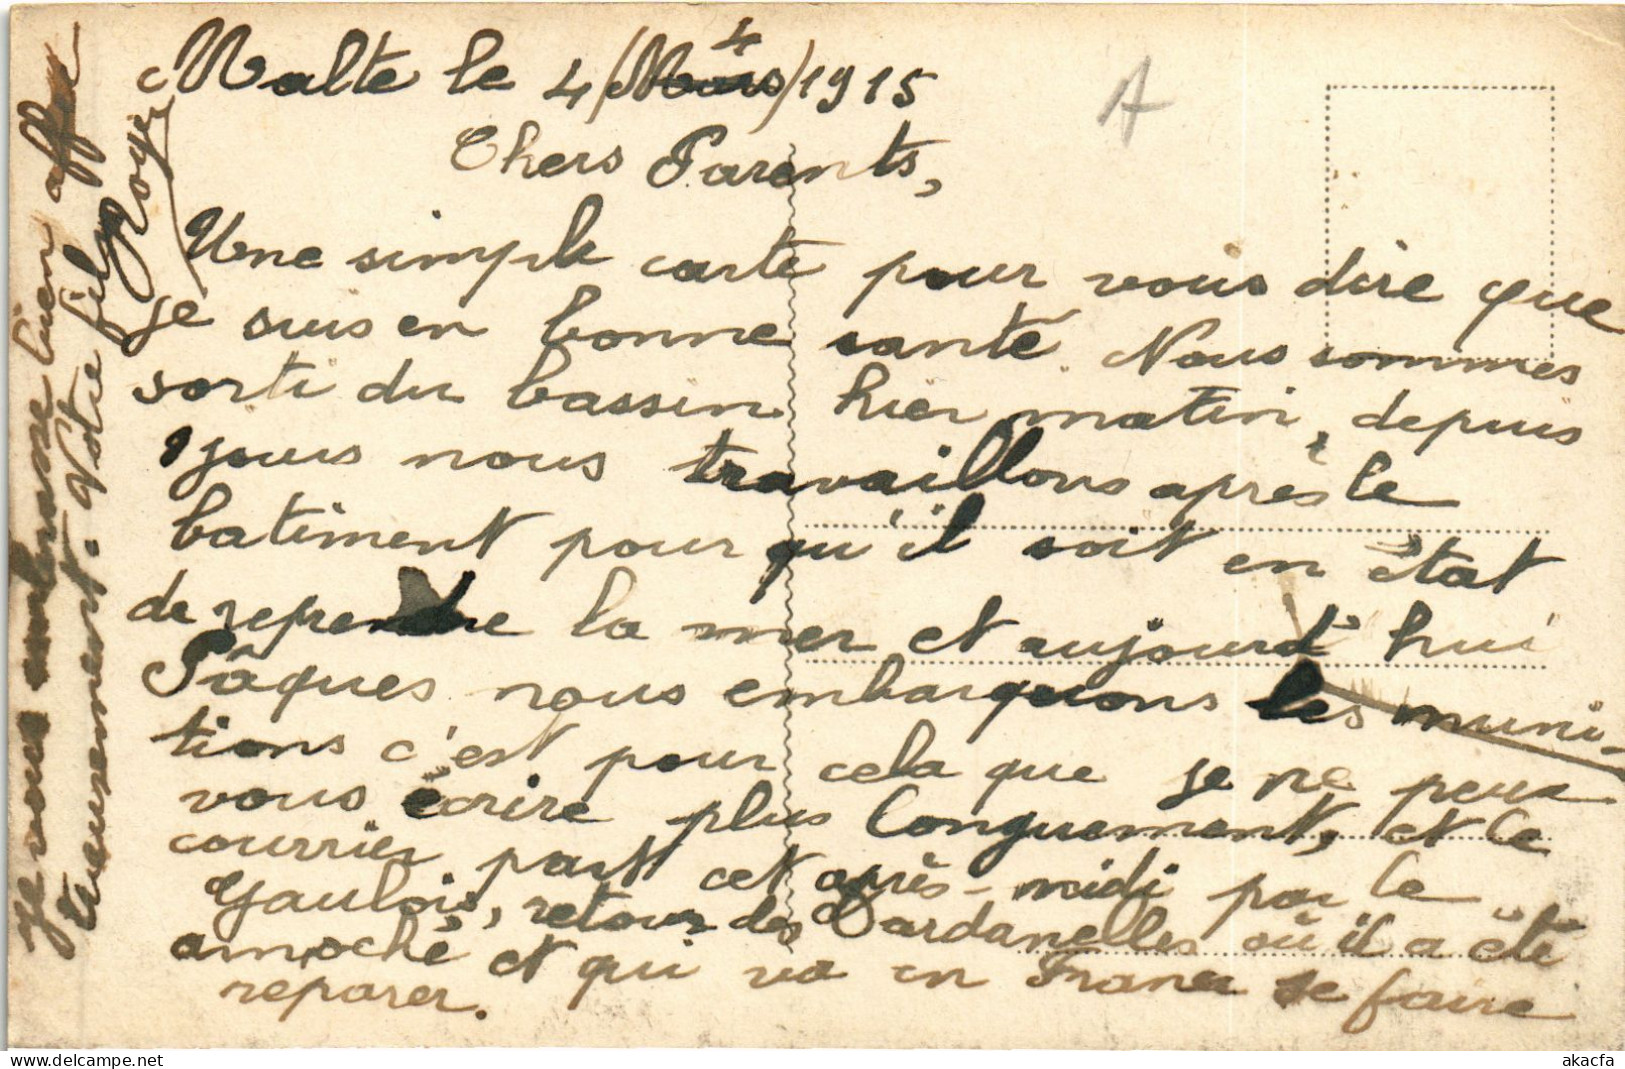 Malte le 4/Mars/1915
4
A
Chers Parents,
Une simple carte pour vous dire que
je suis en bonne santé. Nous sommes
sorti du bassin hier matin, depuis
jours nous travaillons après le
batiment pour qu'il soit en état
de reprendre la mer et aujourd'hui
Pâques nous embarquons les muni-
tions c'est pour cela que je ne peux
vous écrire plus longuement, et le
courrier part cet après-midi par le
Gaulois, retour des Dardanelles où il a été
amoché et qui va en France se faire
reparer.
Je vous embrasse bien affec
tueusement. Votre fils
Roger
akacfa